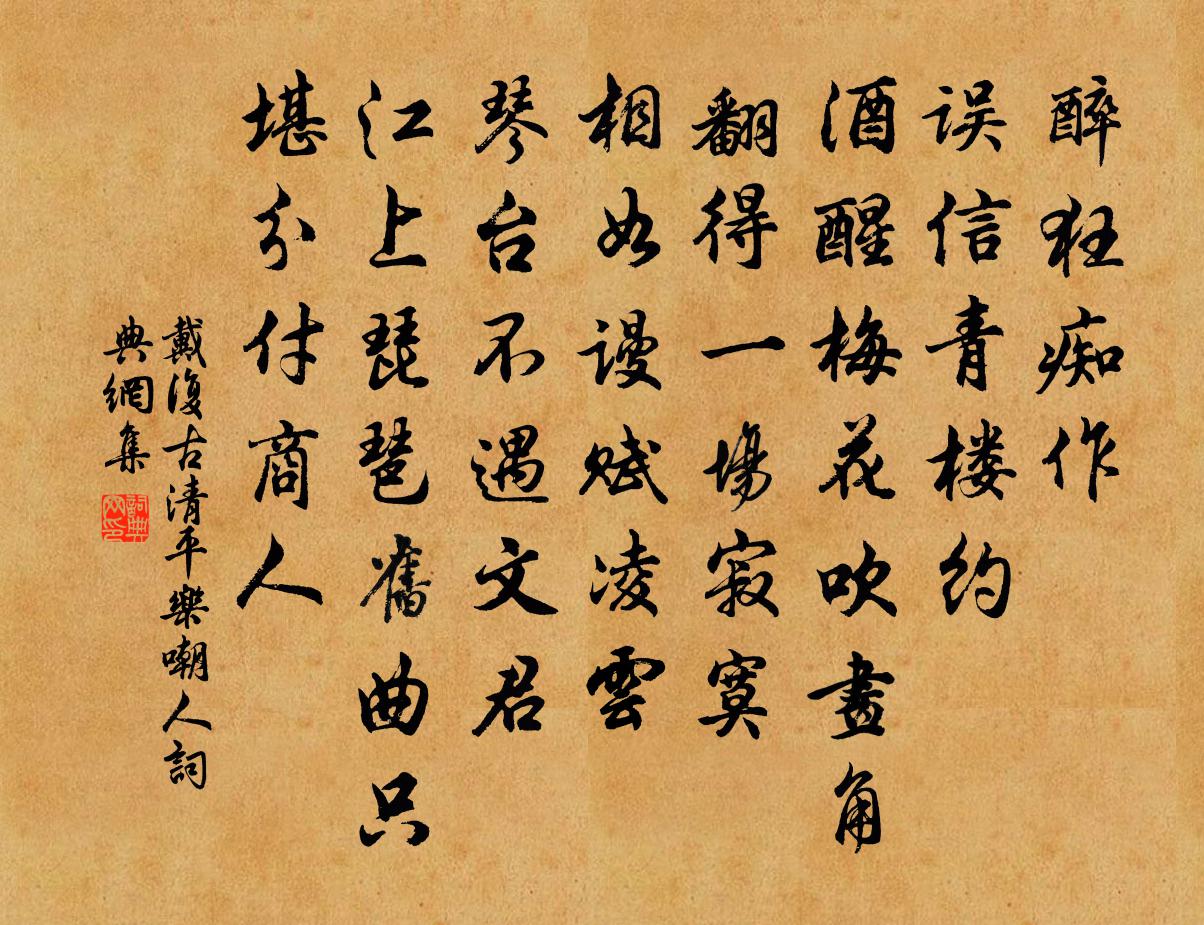 醉狂痴作
误信青楼约
酒醒梅花吹畫角
翻得一場寂寞
相如谩赋凌雲
琴台不遇文君
江上琵琶舊曲只
堪分付商人
戴復古清平樂嘲人詞
典網集
詞典
网印